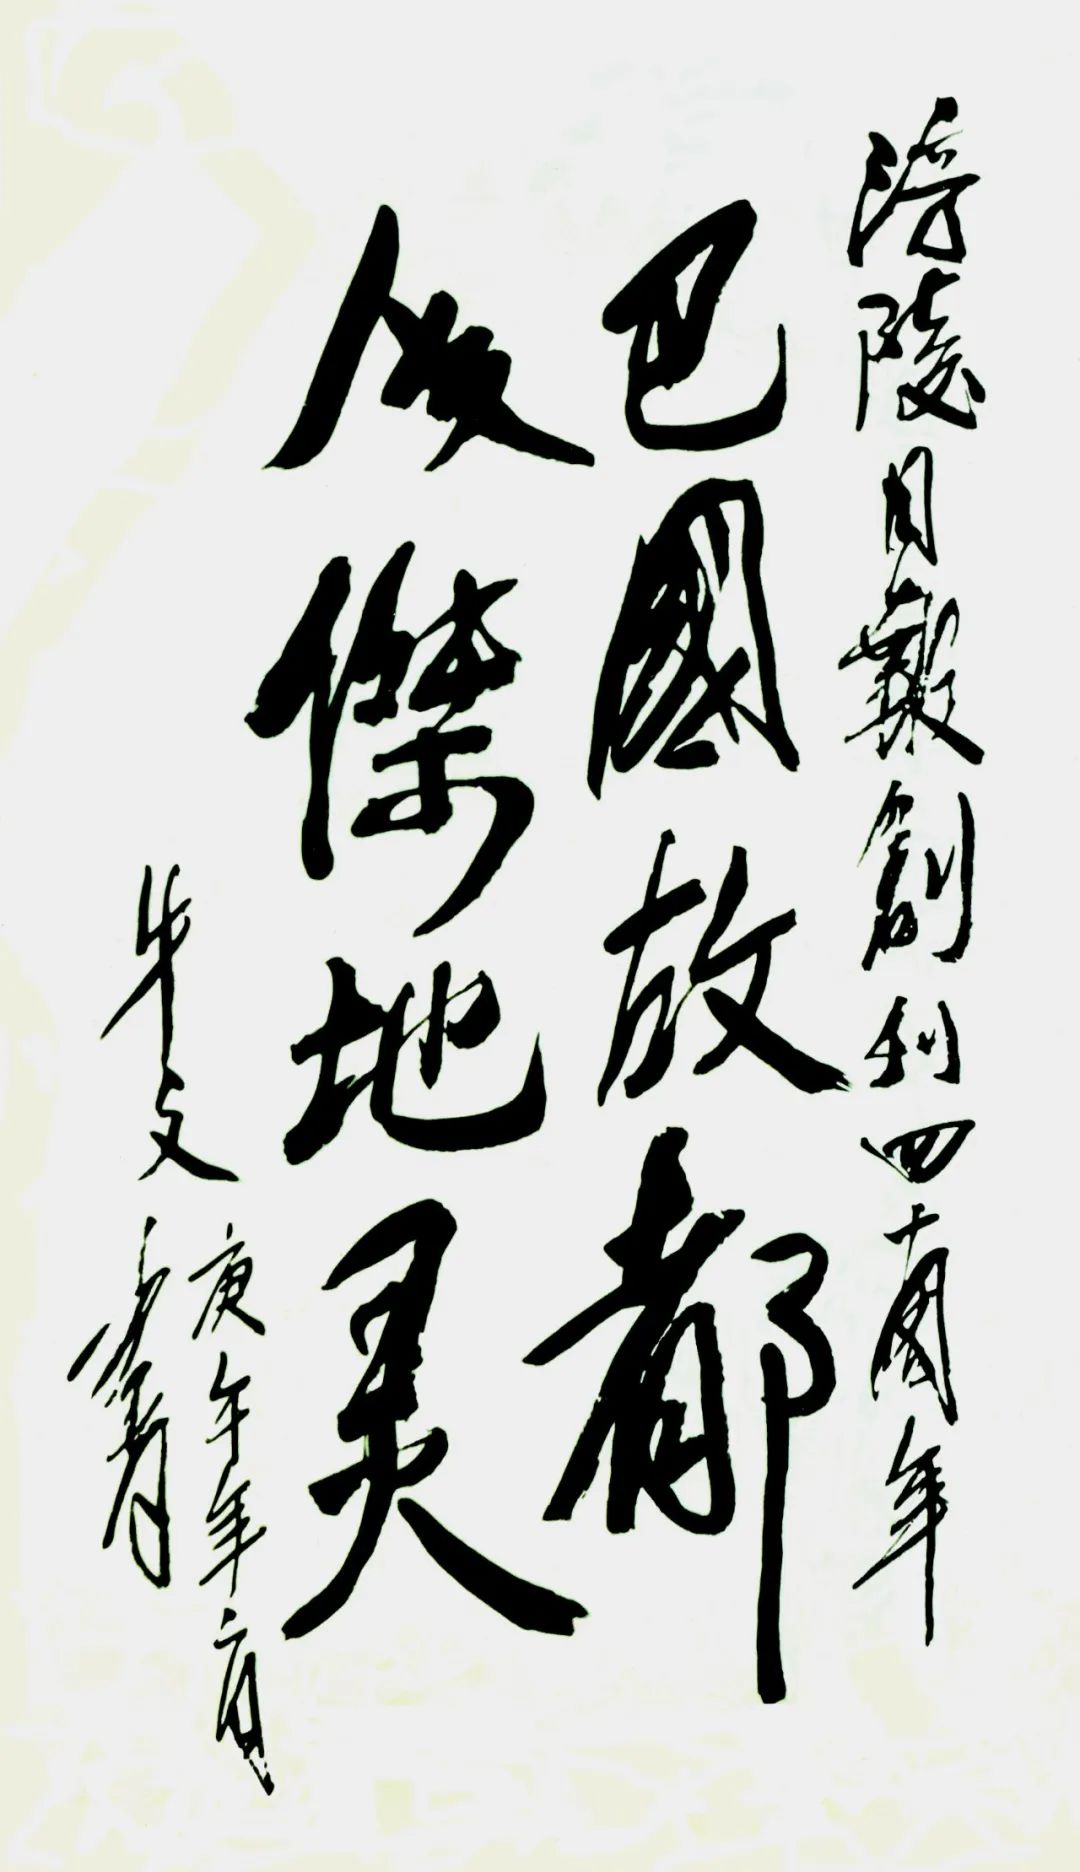 涪陵日報創刊四十周年
巴國故都
人傑地灵
牛文
庚午年